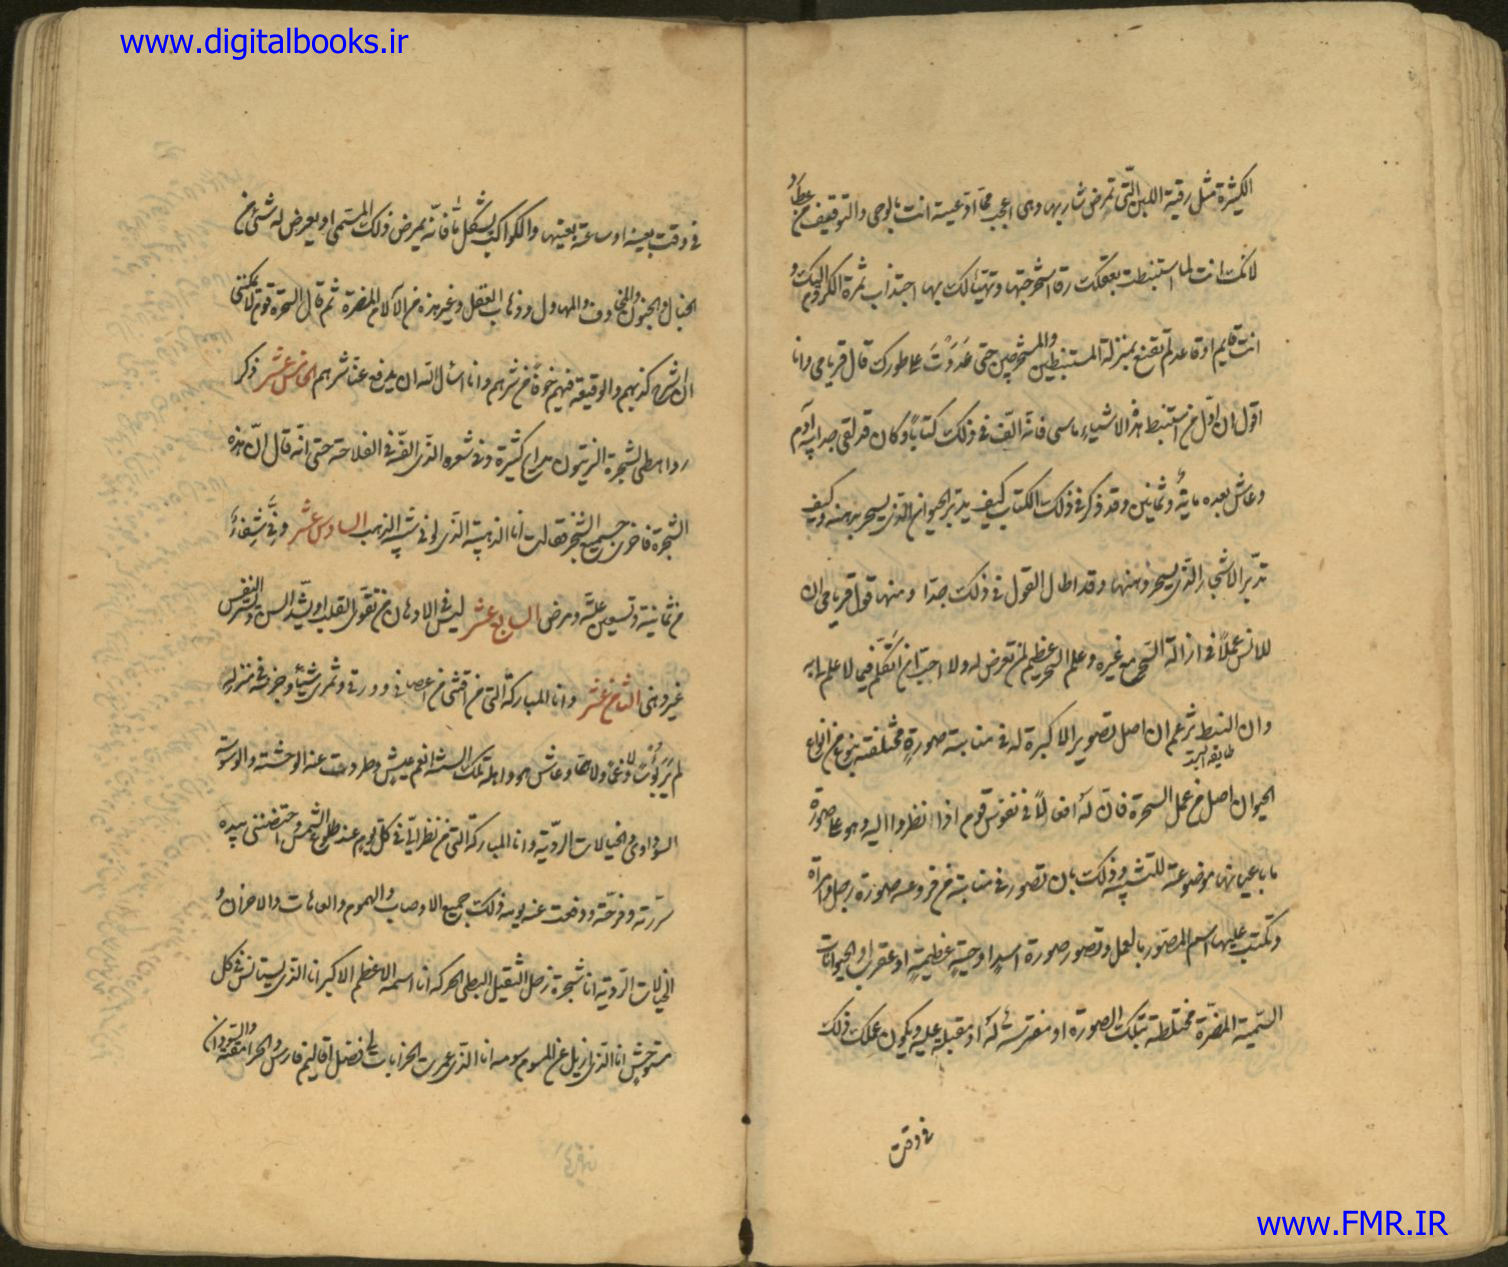 www.digitalbooks.ir
الكثيرة مثل رقية اللبن التى تمرض شاربها وهى اعجب مما ادعيته انت بالوحى والتوقيف من عطارد
لانك انت لما استنبطت بعقلك رقا استخرجتها وتهيّا لك بها اجتذاب ثمرة الكروم اليك و
انت قايم او قاعد لم تقنع بمنزلة المستنبطين والمستخرجين حتى عَدَوْتَ على طورك قال قريامى وانا
اقول ان اوّل من استنبط هذه الاشياء ماسى فانه الّف فى ذلك كتابًا وكان قد لقى جد ابيه آدم
وعاش بعده ماية وثمانين وقد ذكر فى ذلك الكتاب كيف يدبّر الحيوان الذى يسحر به منه وكيف
تدّبر الاشجار التى يسحر منها وقد اطال القول فى ذلك جدّا ومنها قول قريامى ان
للانس عملًا فى ازالة السحر مع غيره وعلم السحر عظيم لمن تعرض له ولا احب ان اتكلم فيما لا علم لى به
وان النبط تزعم ان اصل تصوير الاكبرة له فى منابته صورة مختلفة بنوع من انواع
طايفة البتة
الحيوان اصل من عمل السحرة فان له افعالًا فى نفوس قوم اذا نظروا اليه وهو على صورة
ما باعيانها موضوعة للتشبيه وذلك بان تصور فى منابته من فروعه صورة رجل وامراة
وتكتب عليها اسم المصوّر بالعمل وتصور صورة اسد او حية عظيمة او عقرب او الحيوانات
السمية المضرّة مختلطة بتلك الصورة او مفترسة له او مقبلة عليه ويكون عملك ذلك
فى وقت
فى وقت بعينه او ساعة بعينها والكواكب بشكل ما فانّه يعرض لذلك المسمى او يعرض له شئ من
الخبال والجنون والمخاوف والمهاول وذهاب العقل وغير هذه من الآلام المضرة ثم قال السحرة قوم لا يمكننى
ان اشرح كذبهم والوقيعة فيهم خوفًا من شرهم وانا اسأل الله ان يدفع عنا شرهم الخامس عشر ذكر
رواهطى لشجرة الزيتون مدايح كثيرة وفى شعره الذى الفه فى الفلاحة حتى انّه قال انّ هذه
الشجرة فاخرت جميع الشجر فقالت انا الذهبية التى لونى شبه الذهب السادس عشر وفىَّ شفاء
من ثمانية وتسعين علّة ومرض السابع عشر ليس فى الادهان من تقوى القلب او يشد النفس
غير دهنى الثامن عشر وانا المباركة التى من اقتنى من اغصانى وورقى وثمرى شيئا وخزنه فى منزله
لم يَرَ بؤسًا ولا غمًا ولا هما وعاش هو واهله تلك السنة انعم عيش وطردت عنه الوحشة والوسوسة
السوداوى والخيالات الرديّة وانا المباركة التى من نظر الىّ فى كل يوم عند طلوع الشمس واحتضننى بيده
سررته وفرحته ودفعت عنه يومه ذلك جميع الاوصاب والهموم والعاهات والاحزان و
الخيالات الردية انا شجرة زحل الثقيل البطى الحركة انا اسمه الاعظم الاكبر انا الذى يستانس فى كل
متوحش انا التى ازيل عن المسموم سمه انا التى عمرت الخرابات لى افضل اقاليم فارس والحرامقة والسودان
www.FMR.IR